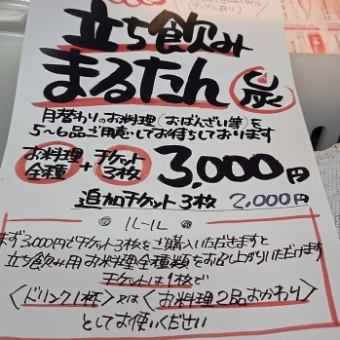 立ち飲み
まるたん 炭
月替わりのお料理(おばんざい等)を
5〜6品ご用意してお待ちしております
お料理全種 + チケット3枚 3,000円
追加チケット3枚 2,000円
ルール
まず3,000円でチケット3枚をご購入いただきますと
立ち飲み用お料理全種類をお召し上がりいただけます
チケットは1枚で
〈ドリンク1杯〉又は〈お料理2品おかわり〉
としてお使いください